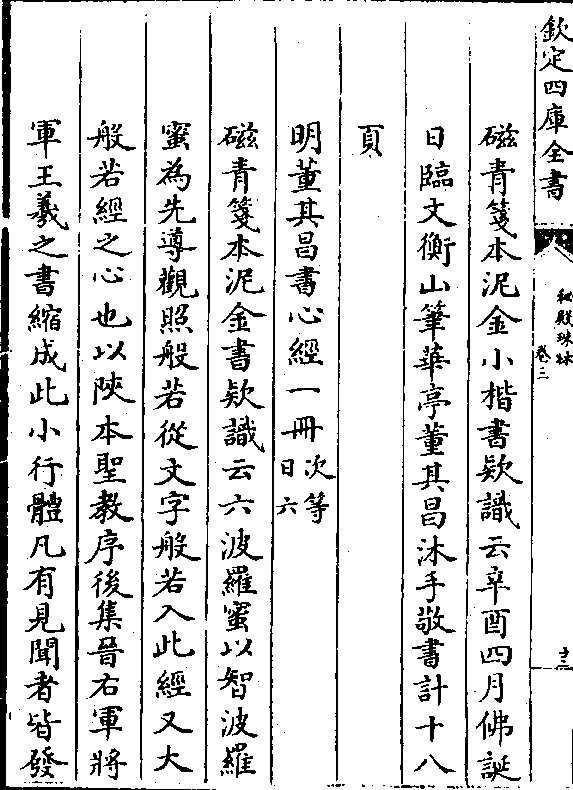 欽定四庫全書
秘殿珠林
卷三
十三
磁青箋本泥金小楷書欵識云辛酉四月佛誕
日臨文衡山筆華亭董其昌沐手敬書計十八
頁
明董其昌書心經一冊次等日六
磁青箋本泥金書欵識云六波羅蜜以智波羅
蜜為先導觀照般若從文字般若入此經又大
般若經之心也以陜本聖教序後集晉右軍將
軍王羲之書縮成此小行體凡有見聞者皆發